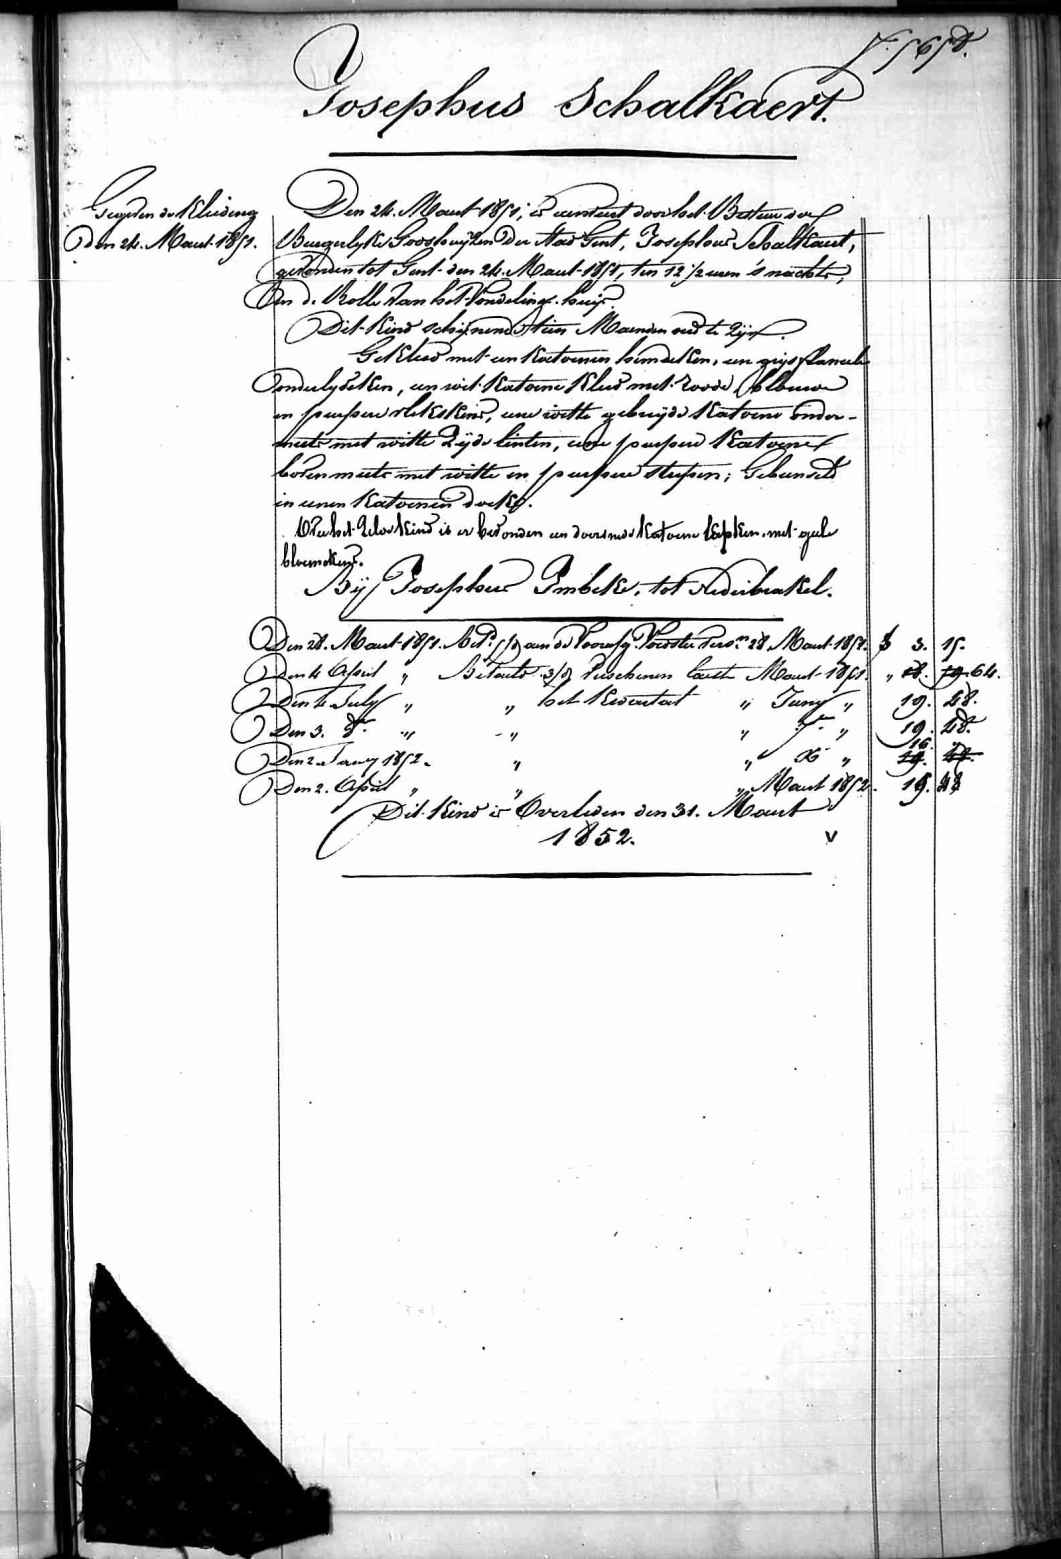 Josephus Schalkaert.
Gegeven de Kleding
den 24. Maert 1851.
Den 24. Maert 1851, is besteed door het Bestuur der
Burgerlyke Godshuyzen der Stad Gent, Josephus Schalkaert,
gevonden tot Gent den 24. Maert 1851, ten 12 1/2 uren 's nachts,
in de Rolle van het Vondelings-huys.
Dit Kind schynende tien Maenden oud te zyn.
Gekleed met een katoenen hemdeken, een grys flanelle
onderlyfken, een wit katoene kleed met roode, blauwe
en purpere vlekskens, eene witte gebreyde katoene onder-
muts met witte zyde linten, eene purpere katoene
bovenmuts met witte en purpere strepen; Gebunseld
in eenen katoenen doek.
Op het zelve kind is er bevonden een katoene lapken met geele
bloemekens.
By Josephus Imbeke, tot Nederbrakel.
Den 28. Maert 1851. aan de Voorsz. 28 Maert 1851. 3. 15.
Den 4 April " Betaeld Maert 1851. " 18. 19. 64.
Den 4 July " " het Kwartael " Juny " 19. 48.
Den 3. 8r " " " 7r " 19. 48.
16.
Den 2 January 1852. " " Xr " 19. 48.
Den 2. April " " " Maert 1852. 19. 48
Dit Kind is Overleden den 31. Maert
1852. v